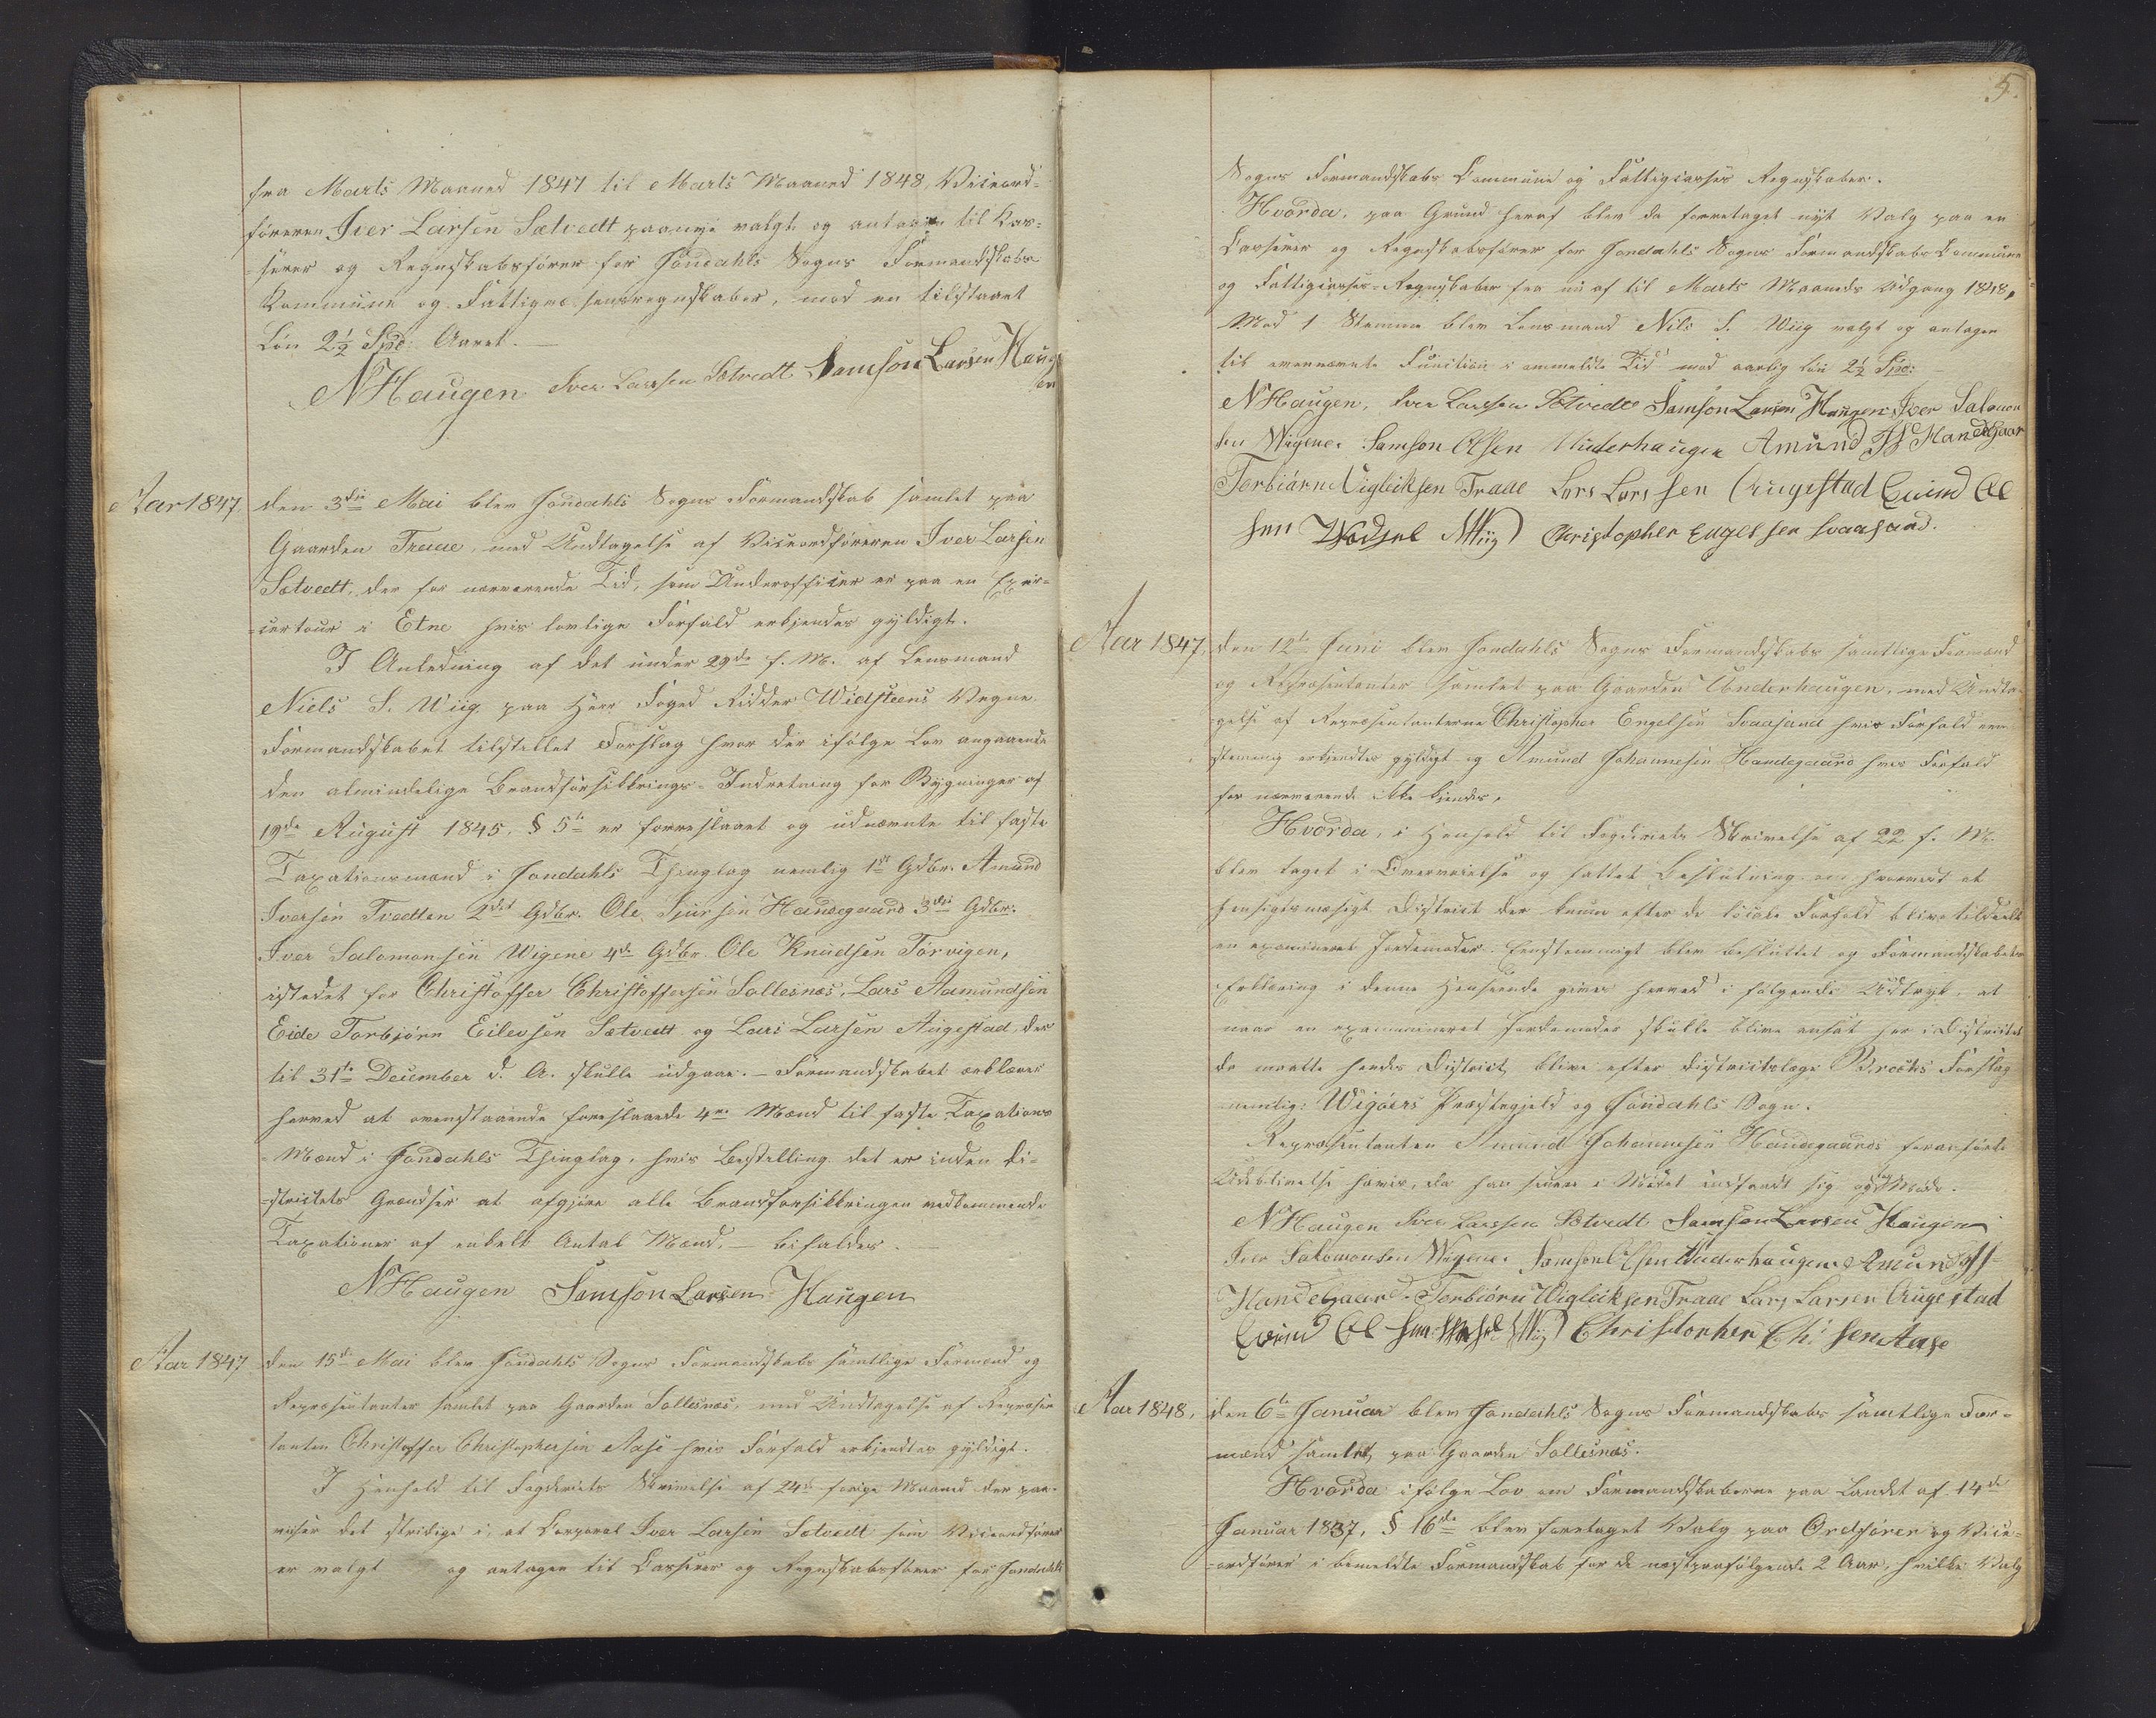 fra Marts Maaned 1847 til Marts Maaned 1848, Viceord-
föreren Iver Larsen Sætvedt paanye valgt og antagen til Cas-
=serer og Regnskabsförer for Jondahls Sogns Formandskabs
Kommune og Fattigvæsensregnskaber, mod en tilstaaet
Lön 2½ Spd: Aaret.
NHaugen Iver Larsen Sætvedt Samson Larsen Haug
en
Aar 1847. den 3die Mai blev Jondahls Sogns Formandskab samlet paa
Gaarden Traae, med Undtagelse af Viceordföreren Iver Larsen
Sætvedt, der for nærværende Tid, som Underofficer er paa en Exer-
=certour i Etne hvis lovlige Forfald erkjendes gyldigt.
I Anledning af det under 29de f. M. af Lensmand
Niels S. Wiig paa Herr Foged Ridder Wielsteens Vegne
Formandskabet tilstillet Forslag hvor der ifölge Lov angaaende
den almindelige Brandforsikkrings-Indretning for Bygninger af
19de August 1845, § 5te er forreslaaet og udnævnte til faste
Taxationsmænd i Jondahls Thinglag nemlig 1ste Gdbr. Amund
Iversen Tvedten 2det Gdbr. Ole Sjursen Handegaard 3die Gdbr.
Iver Salomonsen Wigene 4de Gdbr. Ole Knudsen Torvigen,
istedet for Christoffer Christoffersen Sollesnæs, Lars Aamundsen
Eide Torbjörn Eilevsen Sætvedt og Lars Larsen Augestad, der
til 31te December d. A. skulle udgaae. – Formandskabet erklærer
herved at ovenstaaende foreslaaede 4re Mænd til faste Taxations
=Mænd i Jondahls Thinglag, hvis Bestilling det er inden Di-
=strictets Grændser at afgjöre alle Brandforsikkringen vedkommende
Taxationer af enkelt Antal Mænd, bifaldes.
NHaugen Samson Larsen Haugen
Aar 1847 den 15de Mai blev Jondahls Sogns Formandskabs samtlige Formænd og
Repræsentanter samlet paa Gaarden Sollesnæs, med Undtagelse af Repræsen
tanten Christoffer Christophersen Aase hvis Forfald erkjendtes gyldigt.
I Henhold til Fogderiets Skrivelse af 24de forrige Maaned der paa-
viser det stridige i, at Corporal Iver Larsen Sætvedt som Viceordförer
er valgt og antagen til Casserer og Regnskabsförer for Jondahls
5.
Sogns Formandskabs Commune og Fattigcasses Regnskaber.
Hvorda, paa Grund heraf blev da foretaget nyt Valg paa en
Casserer og Regnskabsförer for Jondahls Sogns Formandskabs Commune
og Fattigcasses-Regnskaber fra nu af til Marts Maaneds Udgang 1848,
Med 1 Stemme blev Lensmand Nils S. Wiig valgt og antagen
til ovennævnte Function i ommeldte Tid mod aarlig Lön 2½ Spd:
NHaugen, Iver Larsen Sætvedt Samson Larsen Haugen, Iver Salomon
sen Wigene. Samson Olsen Underhaugen Amund JS Handegaar
Torbiörn Vigleiksen Traae Lars Larssen Augestad Eivind Ol
sen NWiig Christopher Engelsen Svaasand.
Aar 1847, den 12te Juni blev Jondahls Sogns Formandskabs samtlige Formænd
og Repræsentanter samlet paa Gaarden Underhaugen, med Undta-
=gelse af Repræsentanterne Christopher Engelsen Svaasand hvis Forfald een
stemmig erkjendtes gyldigt og Amund Johannesen Handegaard hvis Forfald
for nærværende ikke kjendes,
Hvorda, i Henhold til Fogderiets Skrivelse af 22 f. M.
blev taget i Overveielse og fattet Beslutning om hvorvidt et
hensigtsmæsigt District der kunne efter de locale Forhold blive tildeelt
en examineret Jordemoder. Eenstemmigt blev besluttet og Formandskabets
Erklæring i denne Henseende gives herved i fölgende Udtryk, at
naar en examineret Jordemoder skulle blive ansat her i Districtet
da maatte hendes District blive efter Districtslæge Brochs Forslag
nemlig: Wigöers Præstegjeld og Jondahls Sogn.
Repræsentanten Amund Johannesen Handegaards foranförte
Udeblivelse hæves, da han senere i Mödet indfandt sig og Möde.
NHaugen Iver Larssen Sætvedt Samson Larsen Haugen
Iver Salomonsen Wigene. Samson Olsen Underhaugen Amund JS
Handegaard. Torbiörn Wigleiksen Traae Lars Larsen Augestad
Eivind Olsen NWiig Christopher Ch: sen Aase
Aar 1848, den 6te Januar blev Jondahls Sogns Formandskabs samtlige For-
mænd samlet paa Gaarden Sollesnæs.
Hvorda ifölge Lov om Formandskaberne paa Landet af 14de
Januar 1837, § 16de blev foretaget Valg paa Ordförer og Vice-
=ordförer i bemeldte Formandskab for de næstpaafölgende 2 Aar, hvilke Valg